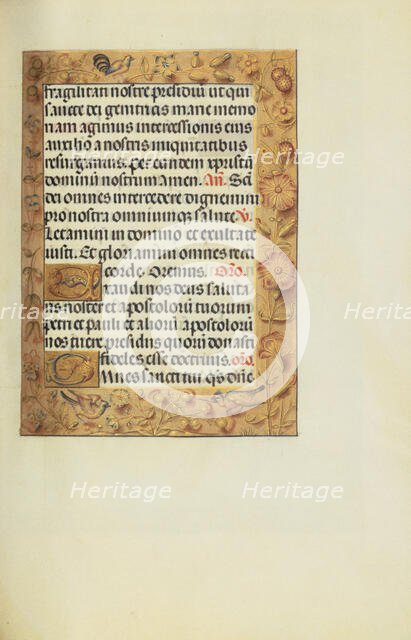 fragilitati nostre presidiu ut qui
sancte dei genitricis marie memo
riam agimus intercessionis eius
auxilio a nostris iniquitatibus
resurgamus. Per eundem xpristu
dominu nostrum amen. An. Scti
dei omnes intercedere dignemini
pro nostra omnium q salute. V.
Letamini in domino et exultate
iusti. Et gloriamini omnes recti
corde. Oremus. Oro.
tau di nos deus saluta
ris noster et apostoloru tuorum
petri et pauli et alioru apostoloru
nos tuere presidiis quoru donasti
fideles esse doctrinis. oro.
mnes sancti tui qs dne
Heritage
Heritage
Heritage
Heritage
Heritage
Heritage